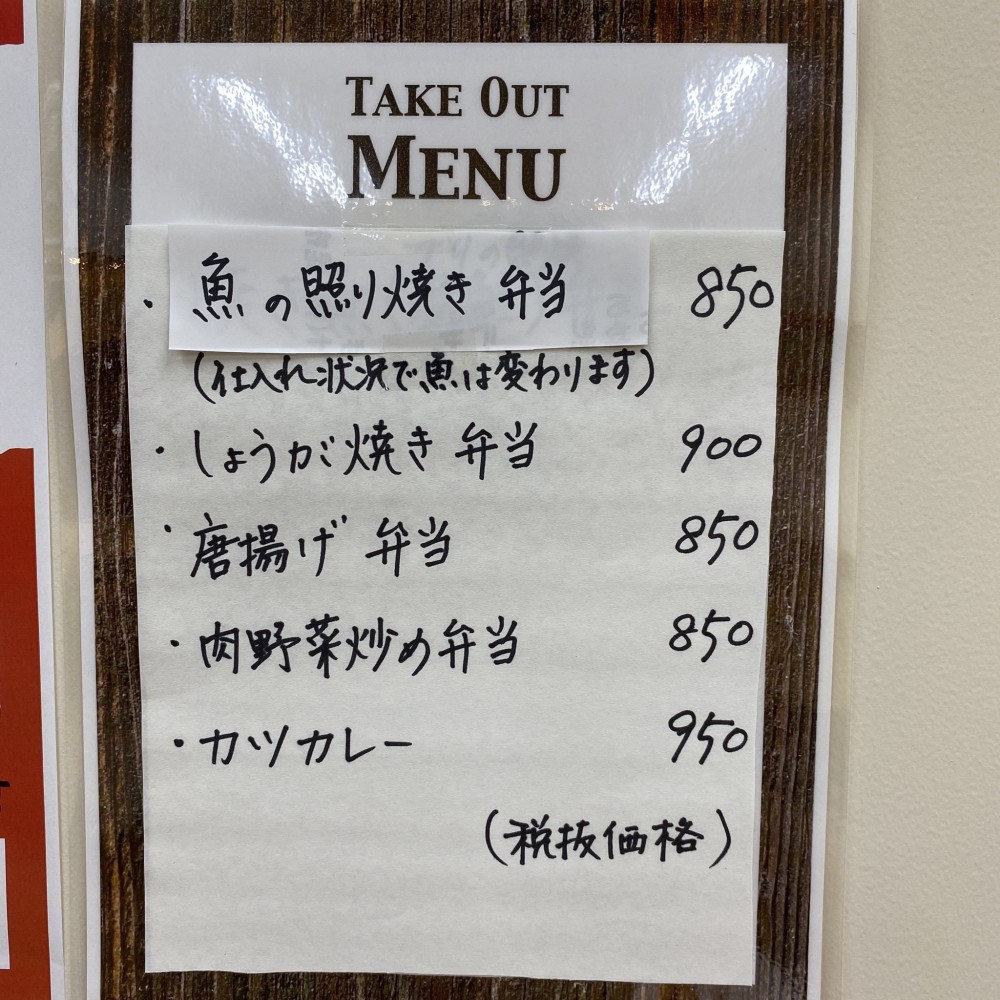 TAKE OUT
MENU
・魚の照り焼き弁当 850
(仕入れ状況で魚は変わります)
・しょうが焼き弁当 900
・唐揚げ弁当 850
・肉野菜炒め弁当 850
・カツカレー 950
(税抜価格)